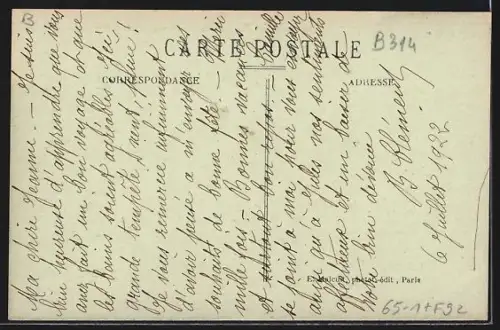 B
B314
CARTE POSTALE
CORRESPONDANCE
ADRESSE
Ma chère Jeanne. — Je suis
bien heureuse d'apprendre que vous
avez fait un bon voyage et que
les bains soient agréables. Ici
grande tempête, vent, pluie!
Je vous remercie infiniment
d'avoir pensé à m'envoyer vos
souhaits de bonne fête. Merci
mille fois — Bonnes vacances
et surtout bon repos. — Camille
se joint à moi pour vous envoyer
ainsi qu'à nos sentiments
affectueux et un baiser à
votre bien
B. Clément
6 Juillet 1922
phot.-édit., Paris
65-1+F92